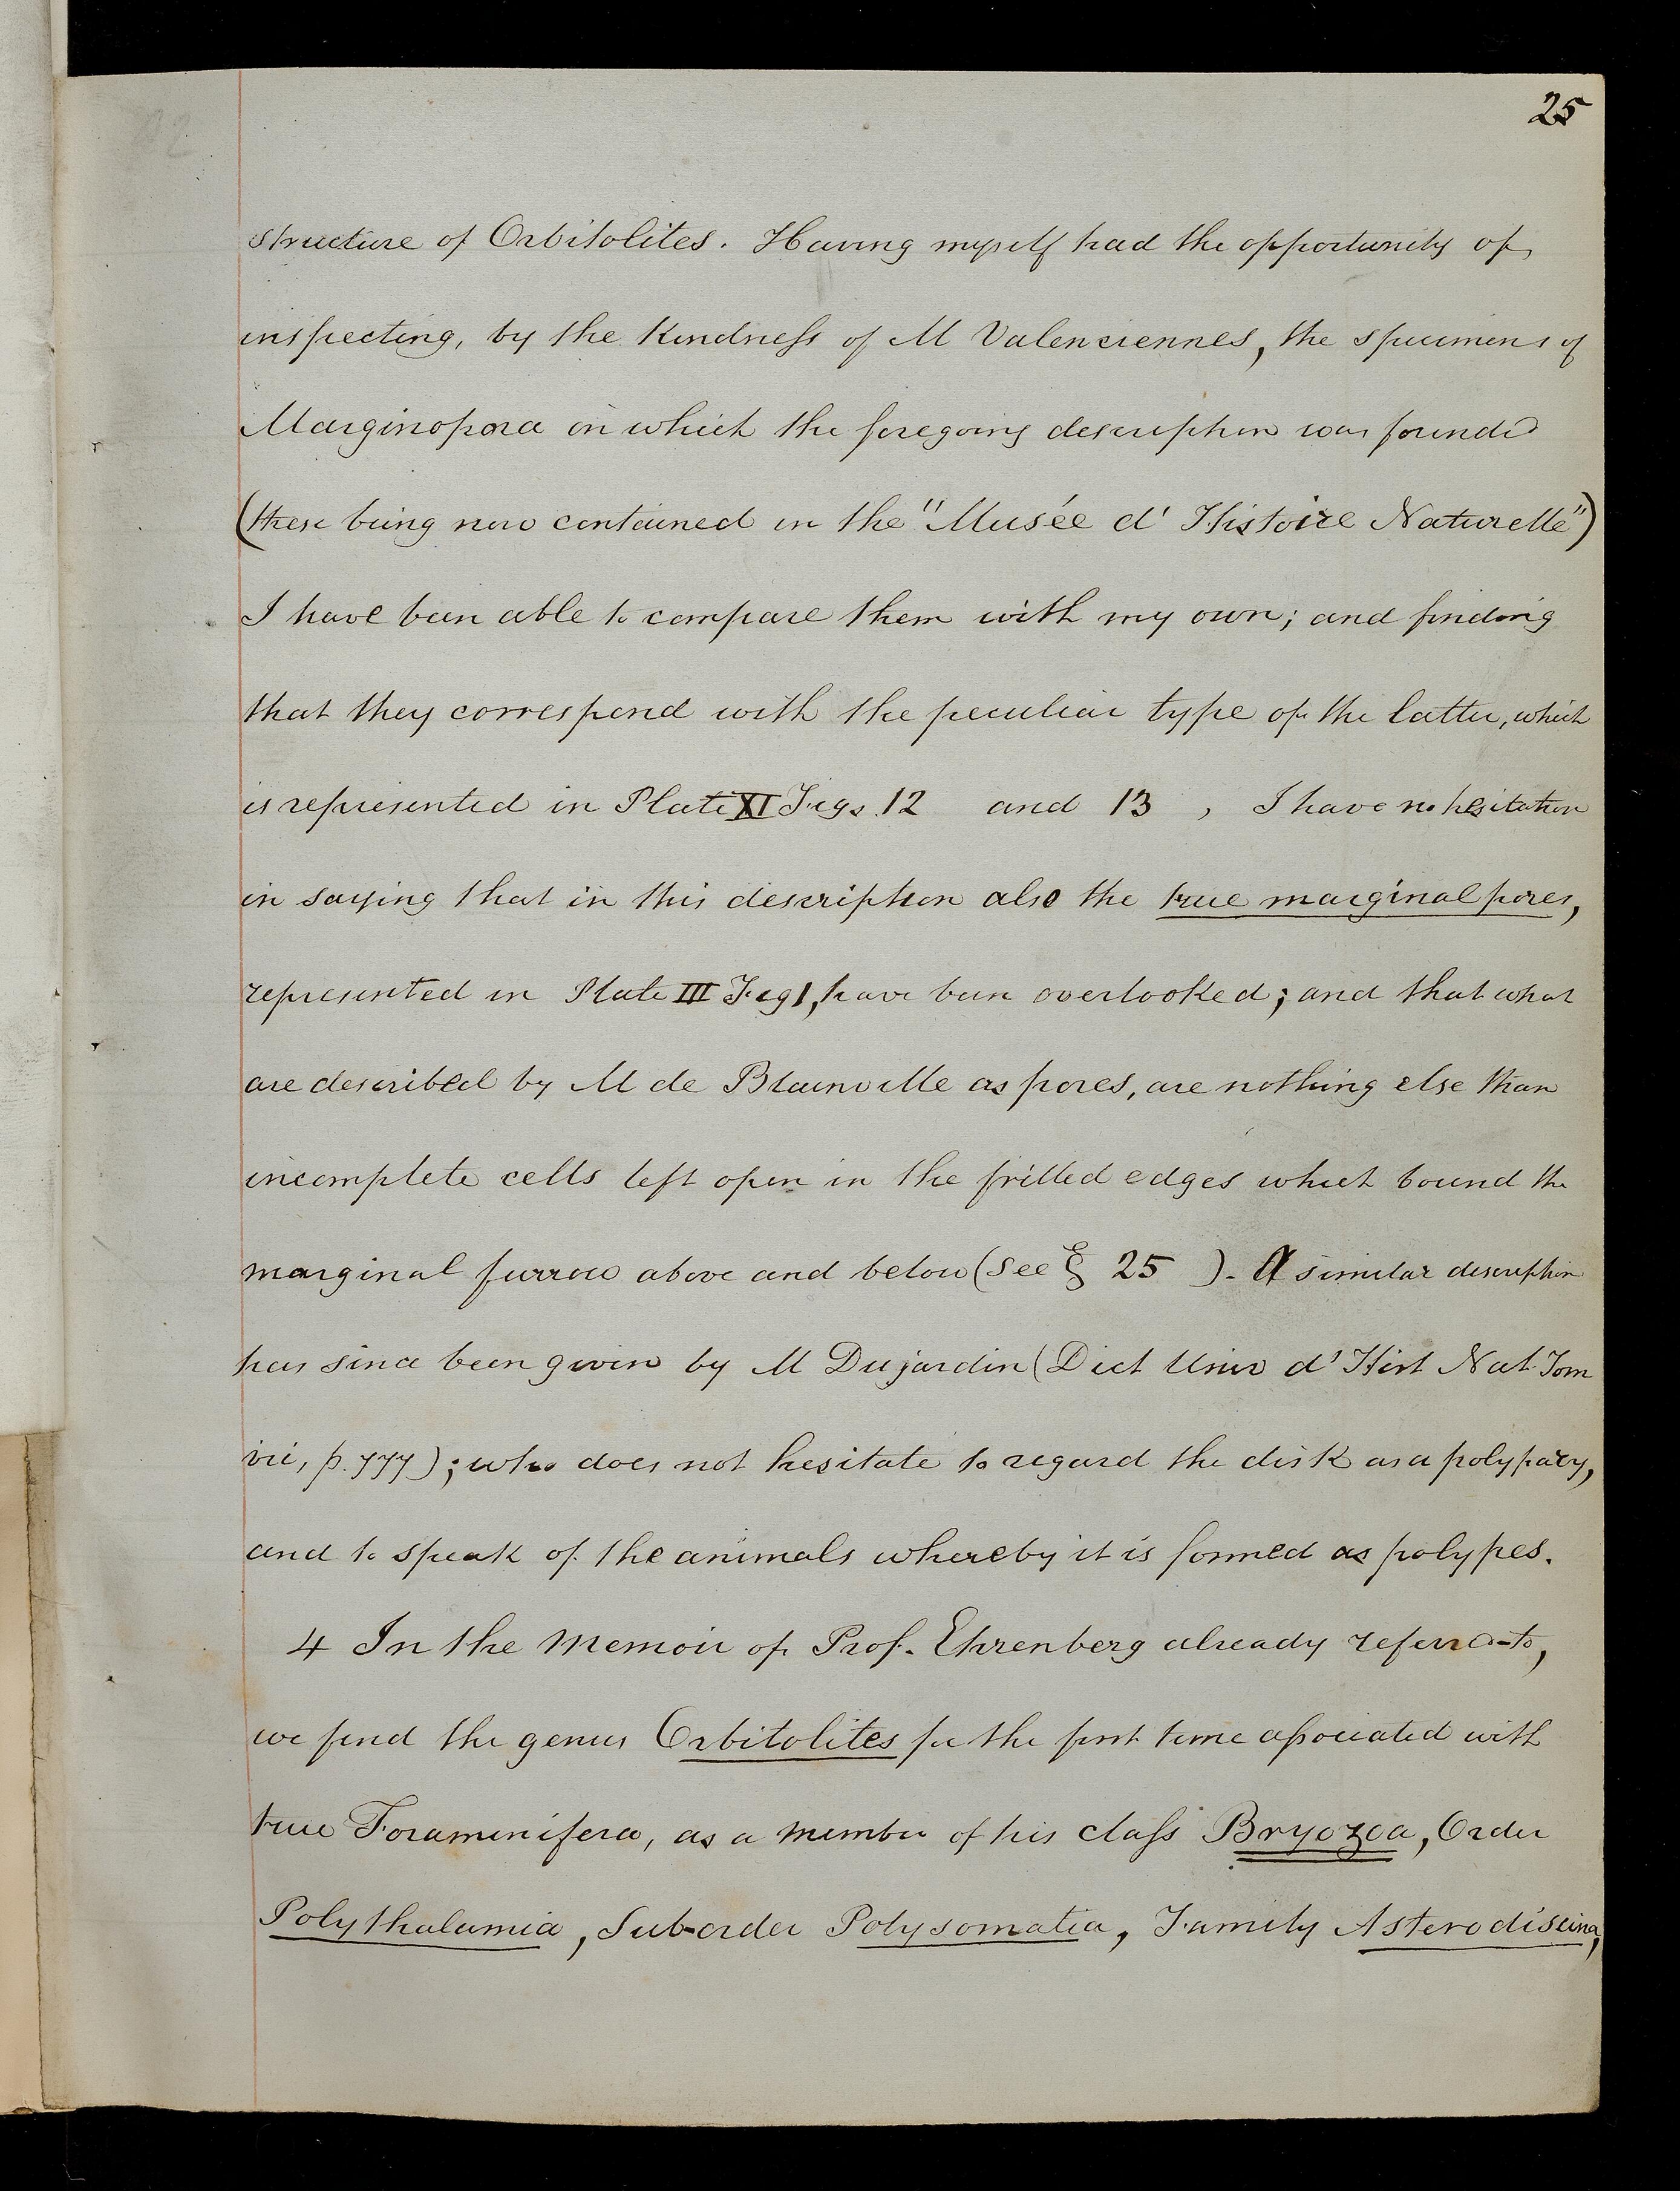 25
structure of Orbitolites. Having myself had the opportunity of
inspecting, by the kindness of M Valenciennes, the specimens of
Marginopora on which the foregoing description was founded
(these being now contained in the "Musée d' Histoire Naturelle")
I have been able to compare them with my own; and finding
that they correspond with the peculiar type of the latter, which
is represented in Plate XI Figs. 12 and 13 , I have no hesitation
in saying that in this description also the true marginal pores,
represented in Plate III Fig 1, have been overlooked; and that what
are described by M de Blainville as pores, are nothing else than
incomplete cells left open in the frilled edges which bound the
marginal furrow above and below (see § 25 ). A similar description
has since been given by M Dujardin (Dict Univ d' Hist Nat Tom
vii, p. 777); who does not hesitate to regard the disk as a polypary,
and to speak of the animals whereby it is formed as polypes.
4 In the Memoir of Prof. Ehrenberg already referred-to,
we find the genus Orbitolites for the first time associated with
true Foraminifera, as a member of his class Bryozoa, Order
Polythalamia, Sub-order Polysomatia, Family Asterodiscina,